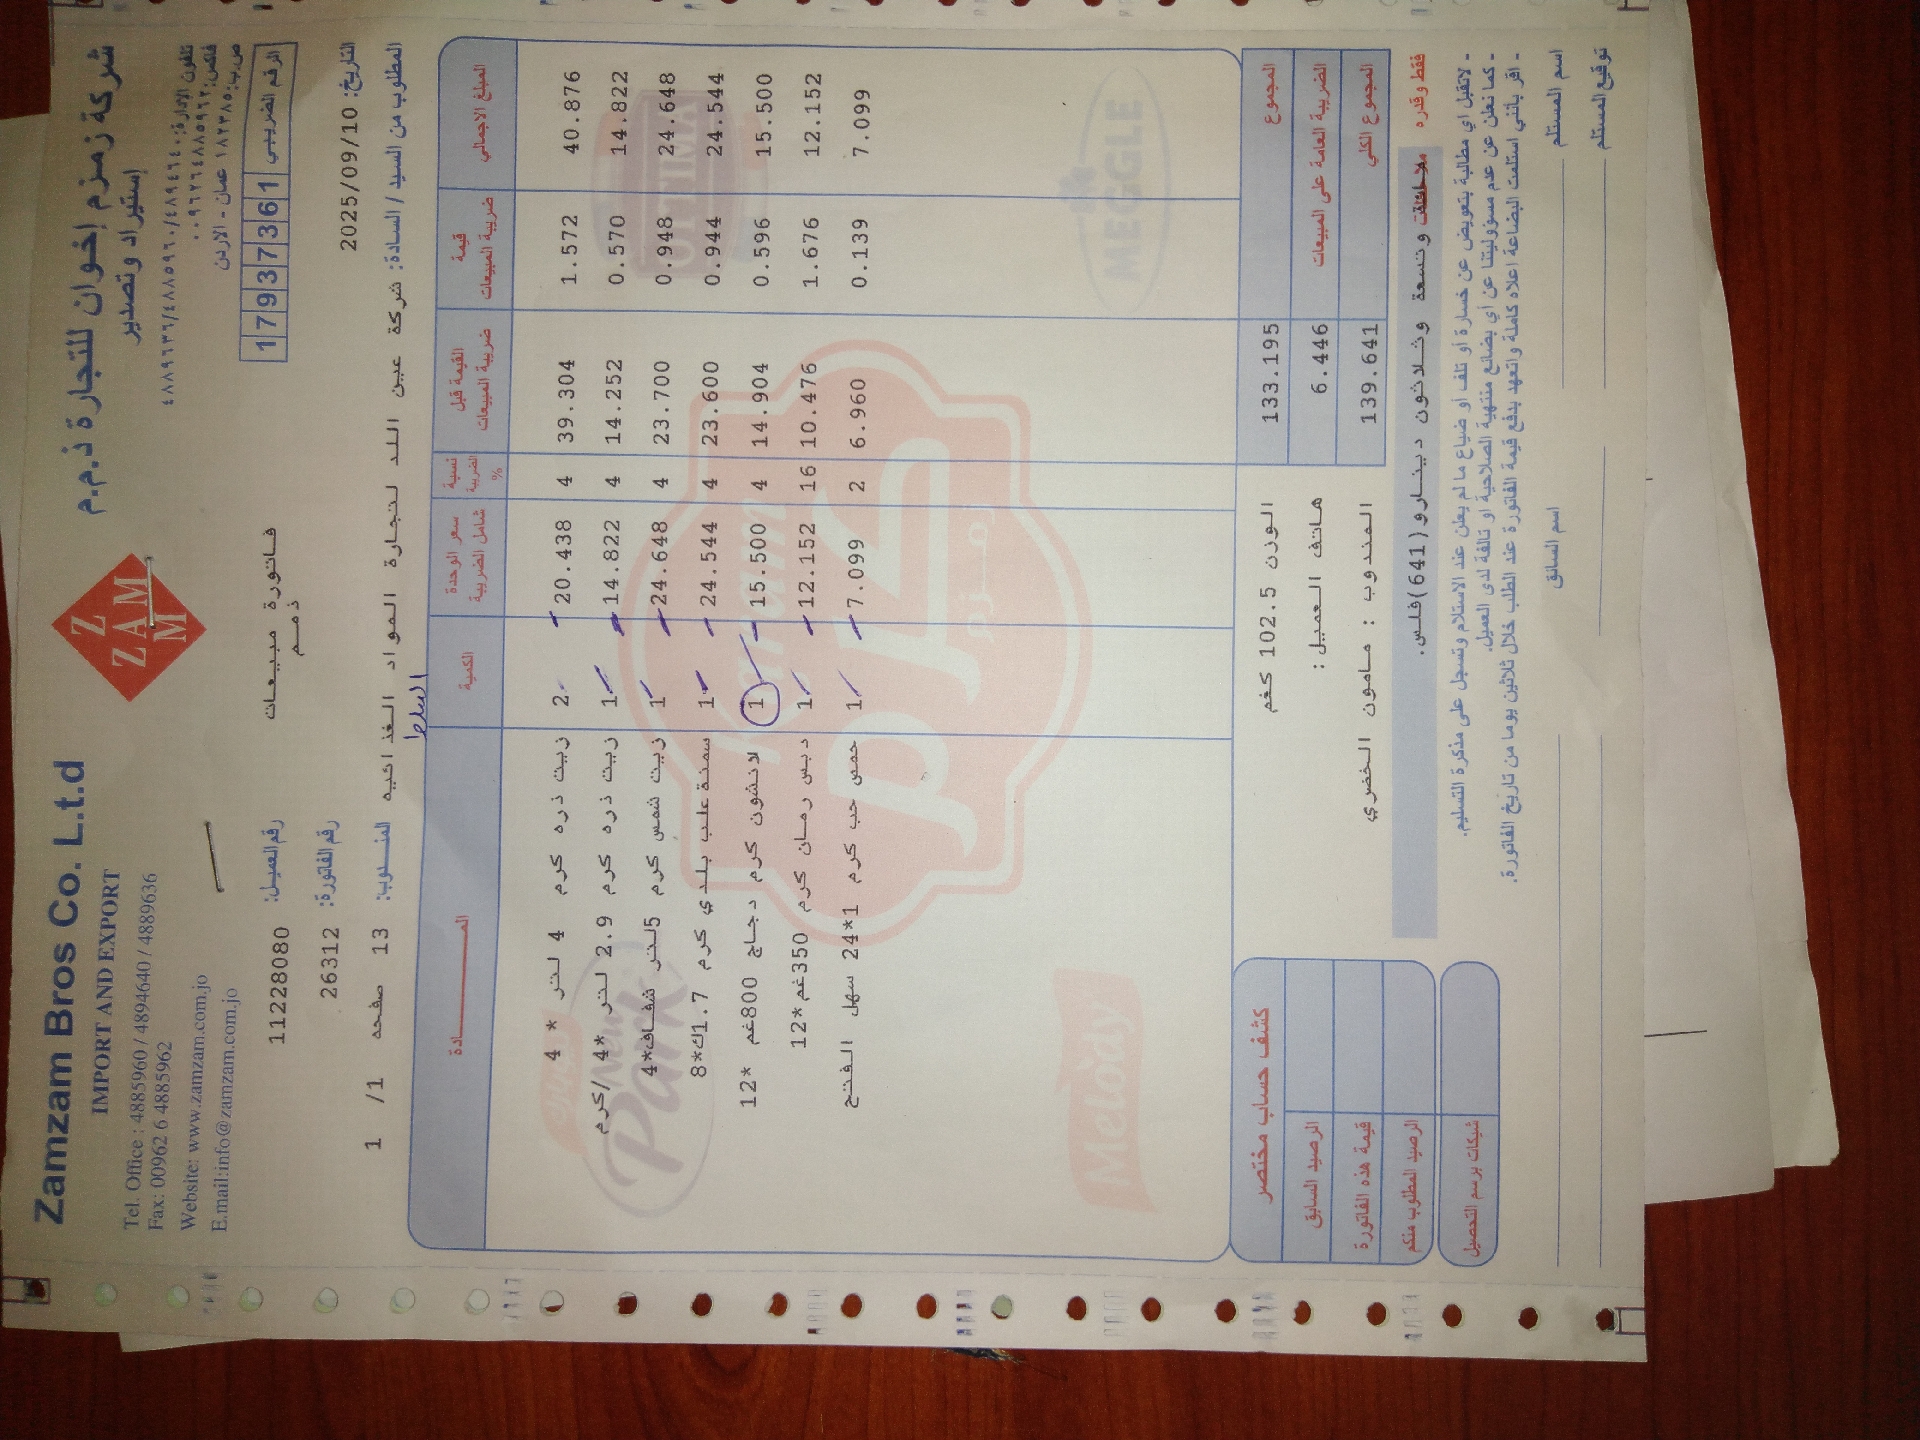 Zamzam Bros Co. L.t.d
IMPORT AND EXPORT
Tel. Office : 4885960 / 4894640 / 4889636
Fax: 00962 6 4885962
Website: www.zamzam.com.jo
E.mail:info@zamzam.com.jo
Z
ZAM
M
شركة زمزم إخوان للتجارة ذ.م.م
إستيراد وتصدير
تلفون الادارة: ٤٨٨٩٦٣٦/٤٨٨٥٩٦٠/٤٨٩٤٦٤٠
فاكس: ٠٠٩٦٢٦٤٨٨٥٩٦٢
ص.ب: ١٨٢٣٨٥ عمان - الاردن
الرقم الضريبي 1 7 9 3 7 3 6 1
فاتورة مبيعات
ذمم
رقم العميل: 11228080
رقم الفاتورة: 26312
التاريخ: 2025/09/10
المطلوب من السيد / السادة: شركة عين اللد لتجارة المواد الغذائيه
المندوب: 13 صفحه 1/ 1
السلط
المادة الكمية سعر الوحدة شامل الضريبة نسبة الضريبة % القيمة قبل ضريبة المبيعات قيمة ضريبة المبيعات المبلغ الاجمالي
زيت ذره كرم 4 لتر * 4 2 20.438 4 39.304 1.572 40.876
زيت ذره كرم 2.9 لتر *4/كرم 1 14.822 4 14.252 0.570 14.822
زيت شمس كرم 5لتر شفاف*4 1 24.648 4 23.700 0.948 24.648
سمنة علب بلدي كرم 1.7ك*8 1 24.544 4 23.600 0.944 24.544
لانشون كرم دجاج 800غم *12 1 15.500 4 14.904 0.596 15.500
دبس رمان كرم 350غم*12 1 12.152 16 10.476 1.676 12.152
حمص حب كرم 1*24 سهل الفتح 1 7.099 2 6.960 0.139 7.099
المجموع 133.195
الضريبة العامة على المبيعات 6.446
المجموع الكلي 139.641
الوزن 102.5 كغم
هاتف العميل :
المندوب : مامون الخضري
كشف حساب مختصر
الرصيد السابق
قيمة هذه الفاتورة
الرصيد المطلوب منكم
شيكات برسم التحصيل
فقط وقدره وتسعة وثلاثون دينارو(641)فلس.
- لاتقبل اي مطالبة بتعويض عن خسارة أو تلف أو ضياع ما لم يعلن عند الاستلام وتسجل على مذكرة التسليم.
- كما نعلن عن عدم مسؤوليتنا عن أي بضائع منتهية الصلاحية او تالفة لدى العميل.
- اقر بانني استلمت البضاعة اعلاه كاملة واتعهد بدفع قيمة الفاتورة عند الطلب خلال ثلاثين يوما من تاريخ الفاتورة.
اسم المستلم
اسم السائق
توقيع المستلم
ULTIMA
MEGGLE
Karam
كرم
Park
Melody